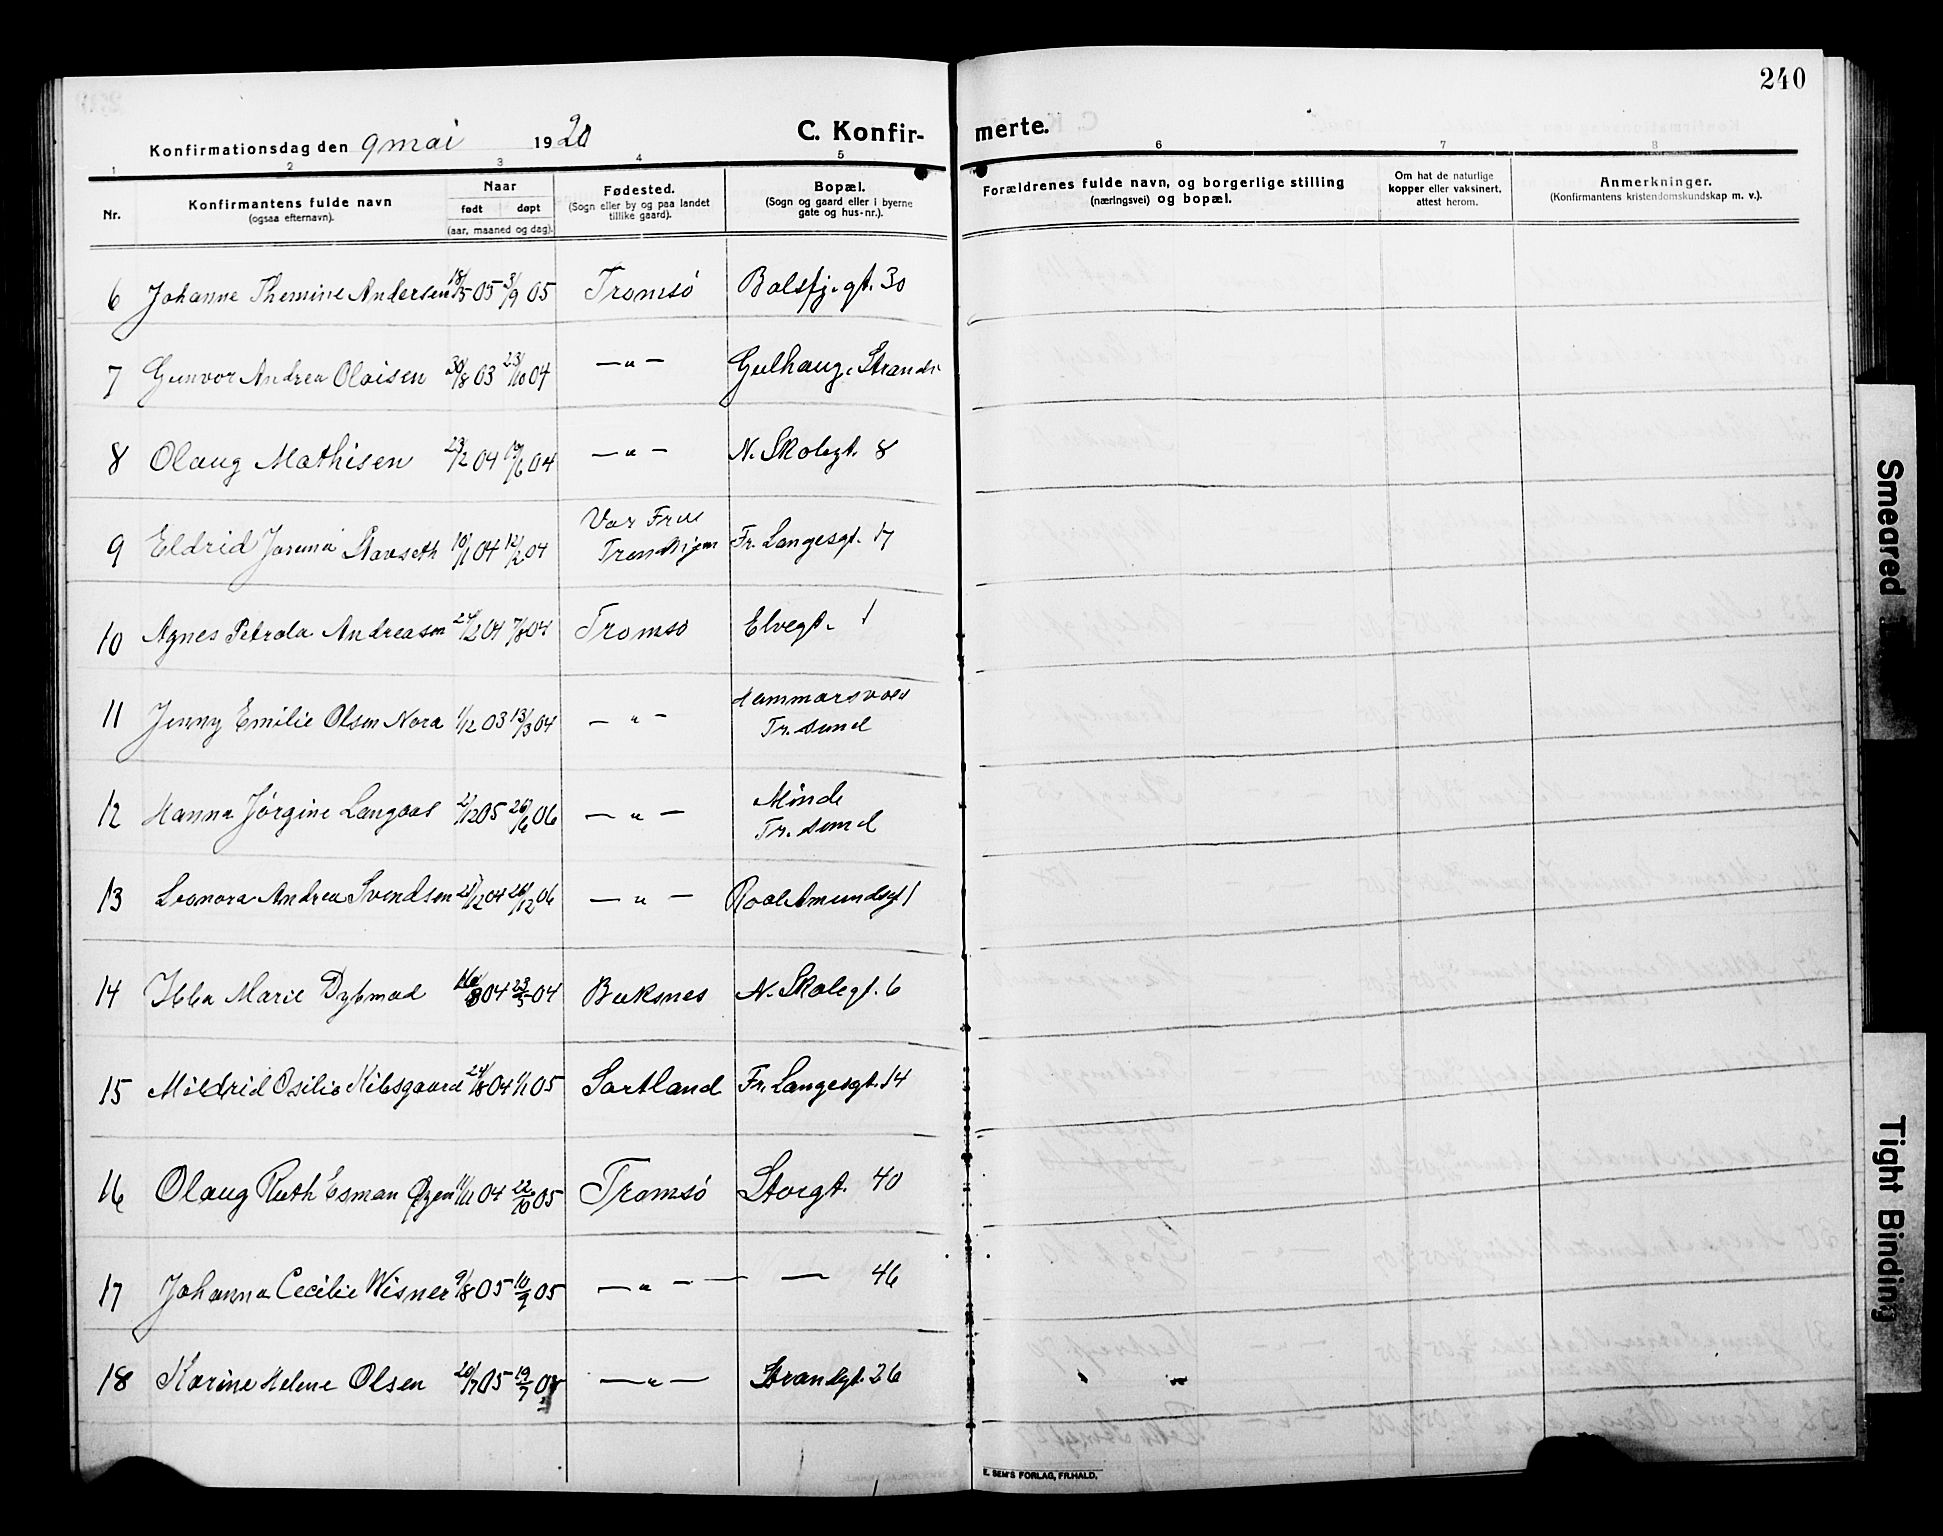 240
C. Konfir-
merte.
Konfirmationsdag den 9 mai 1920
1 2 3 4 5 6 7 8
Nr.
Konfirmantens fulde navn
(ogsaa efternavn).
Naar
født døpt
(aar, maaned og dag).
Fødested.
(Sogn eller by og paa landet
tillike gaard).
Bopæl.
(Sogn og gaard eller i byerne
gate og hus-nr.).
Forældrenes fulde navn, og borgerlige stilling
(næringsvei) og bopæl.
Om hat de naturlige
kopper eller vaksinert,
attest herom.
Anmerkninger.
(Konfirmantens kristendomskundskap m. v.).
6 Johanne Themine Andersen 18/5 05 3/9 05 Tromsø Balsfj. gt. 30
7 Gunvor Andrea Olaisen 30/8 03 23/10 04 — " — Gulhaug, Strandv
8 Olaug Mathisen 23/2 04 19/6 04 — " — N. Skolegt. 8
9 Eldrid Stavseth 10/1 04 12/2 04 Vor Frue Trondhjem Fr. Langesgt. 17
10 Agnes Petrola Andreasen 27/12 04 7/8 04 Tromsø Elvegt. 1
11 Jenny Emilie Olsen Nora 1/12 03 13/3 04 — " — Tr. sund
12 Hanna Jørgine Langaas 2/12 05 26/6 06 — " — Minde Tr. sund
13 Leonora Andrea Svendsen 21/12 04 26/12 06 — " — Roal Amundsgt 1
14 Ibba Marie 16/3 04 23/5 04 Buksnes N. Skolegt. 6
15 Mildrid Osilie Kilsgaard 24/8 04 1/1 05 Sortland Fr. Langesgt. 14
16 Olaug Ruth Esman Øyen 11/11 04 22/10 05 Tromsø Storgt. 40
17 Johanna Cecilie Wisner 9/8 05 10/9 05 — " — — 46
18 Karine Helene Olsen 20/7 05 19/7 — " — Strandgt. 26
E. SEM'S FORLAG, FR.HALD.
Smeared
Tight Binding